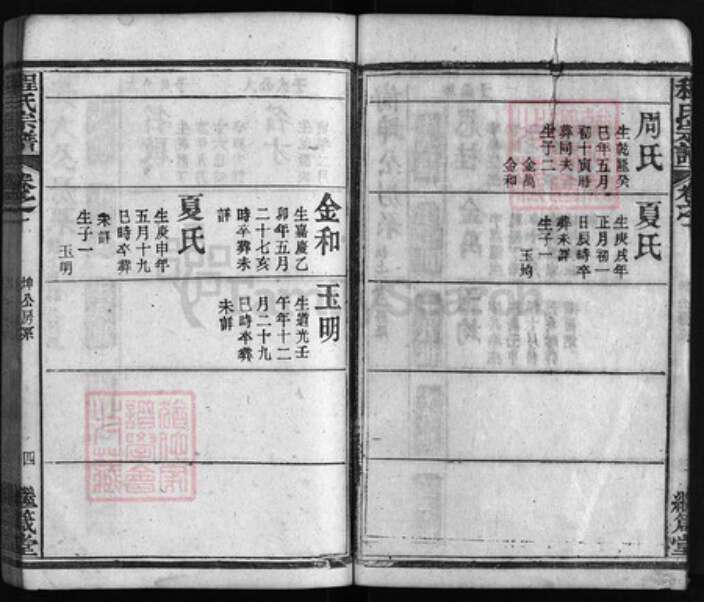 周氏
生乾隆癸
巳年五月
初十寅時
葬同夫
生子二
金萬
金和
夏氏
生庚戌年
正月初一
日辰時卒
葬未詳
生子一
玉均
金和
生嘉慶乙
卯年五月
二十七亥
時卒葬未
詳
夏氏
生庚申年
五月十九
巳時卒葬
未詳
生子一
玉明
玉明
生道光壬
午年十二
月二十九
巳時卒葬
未詳
程氏宗譜
坤公房系
四